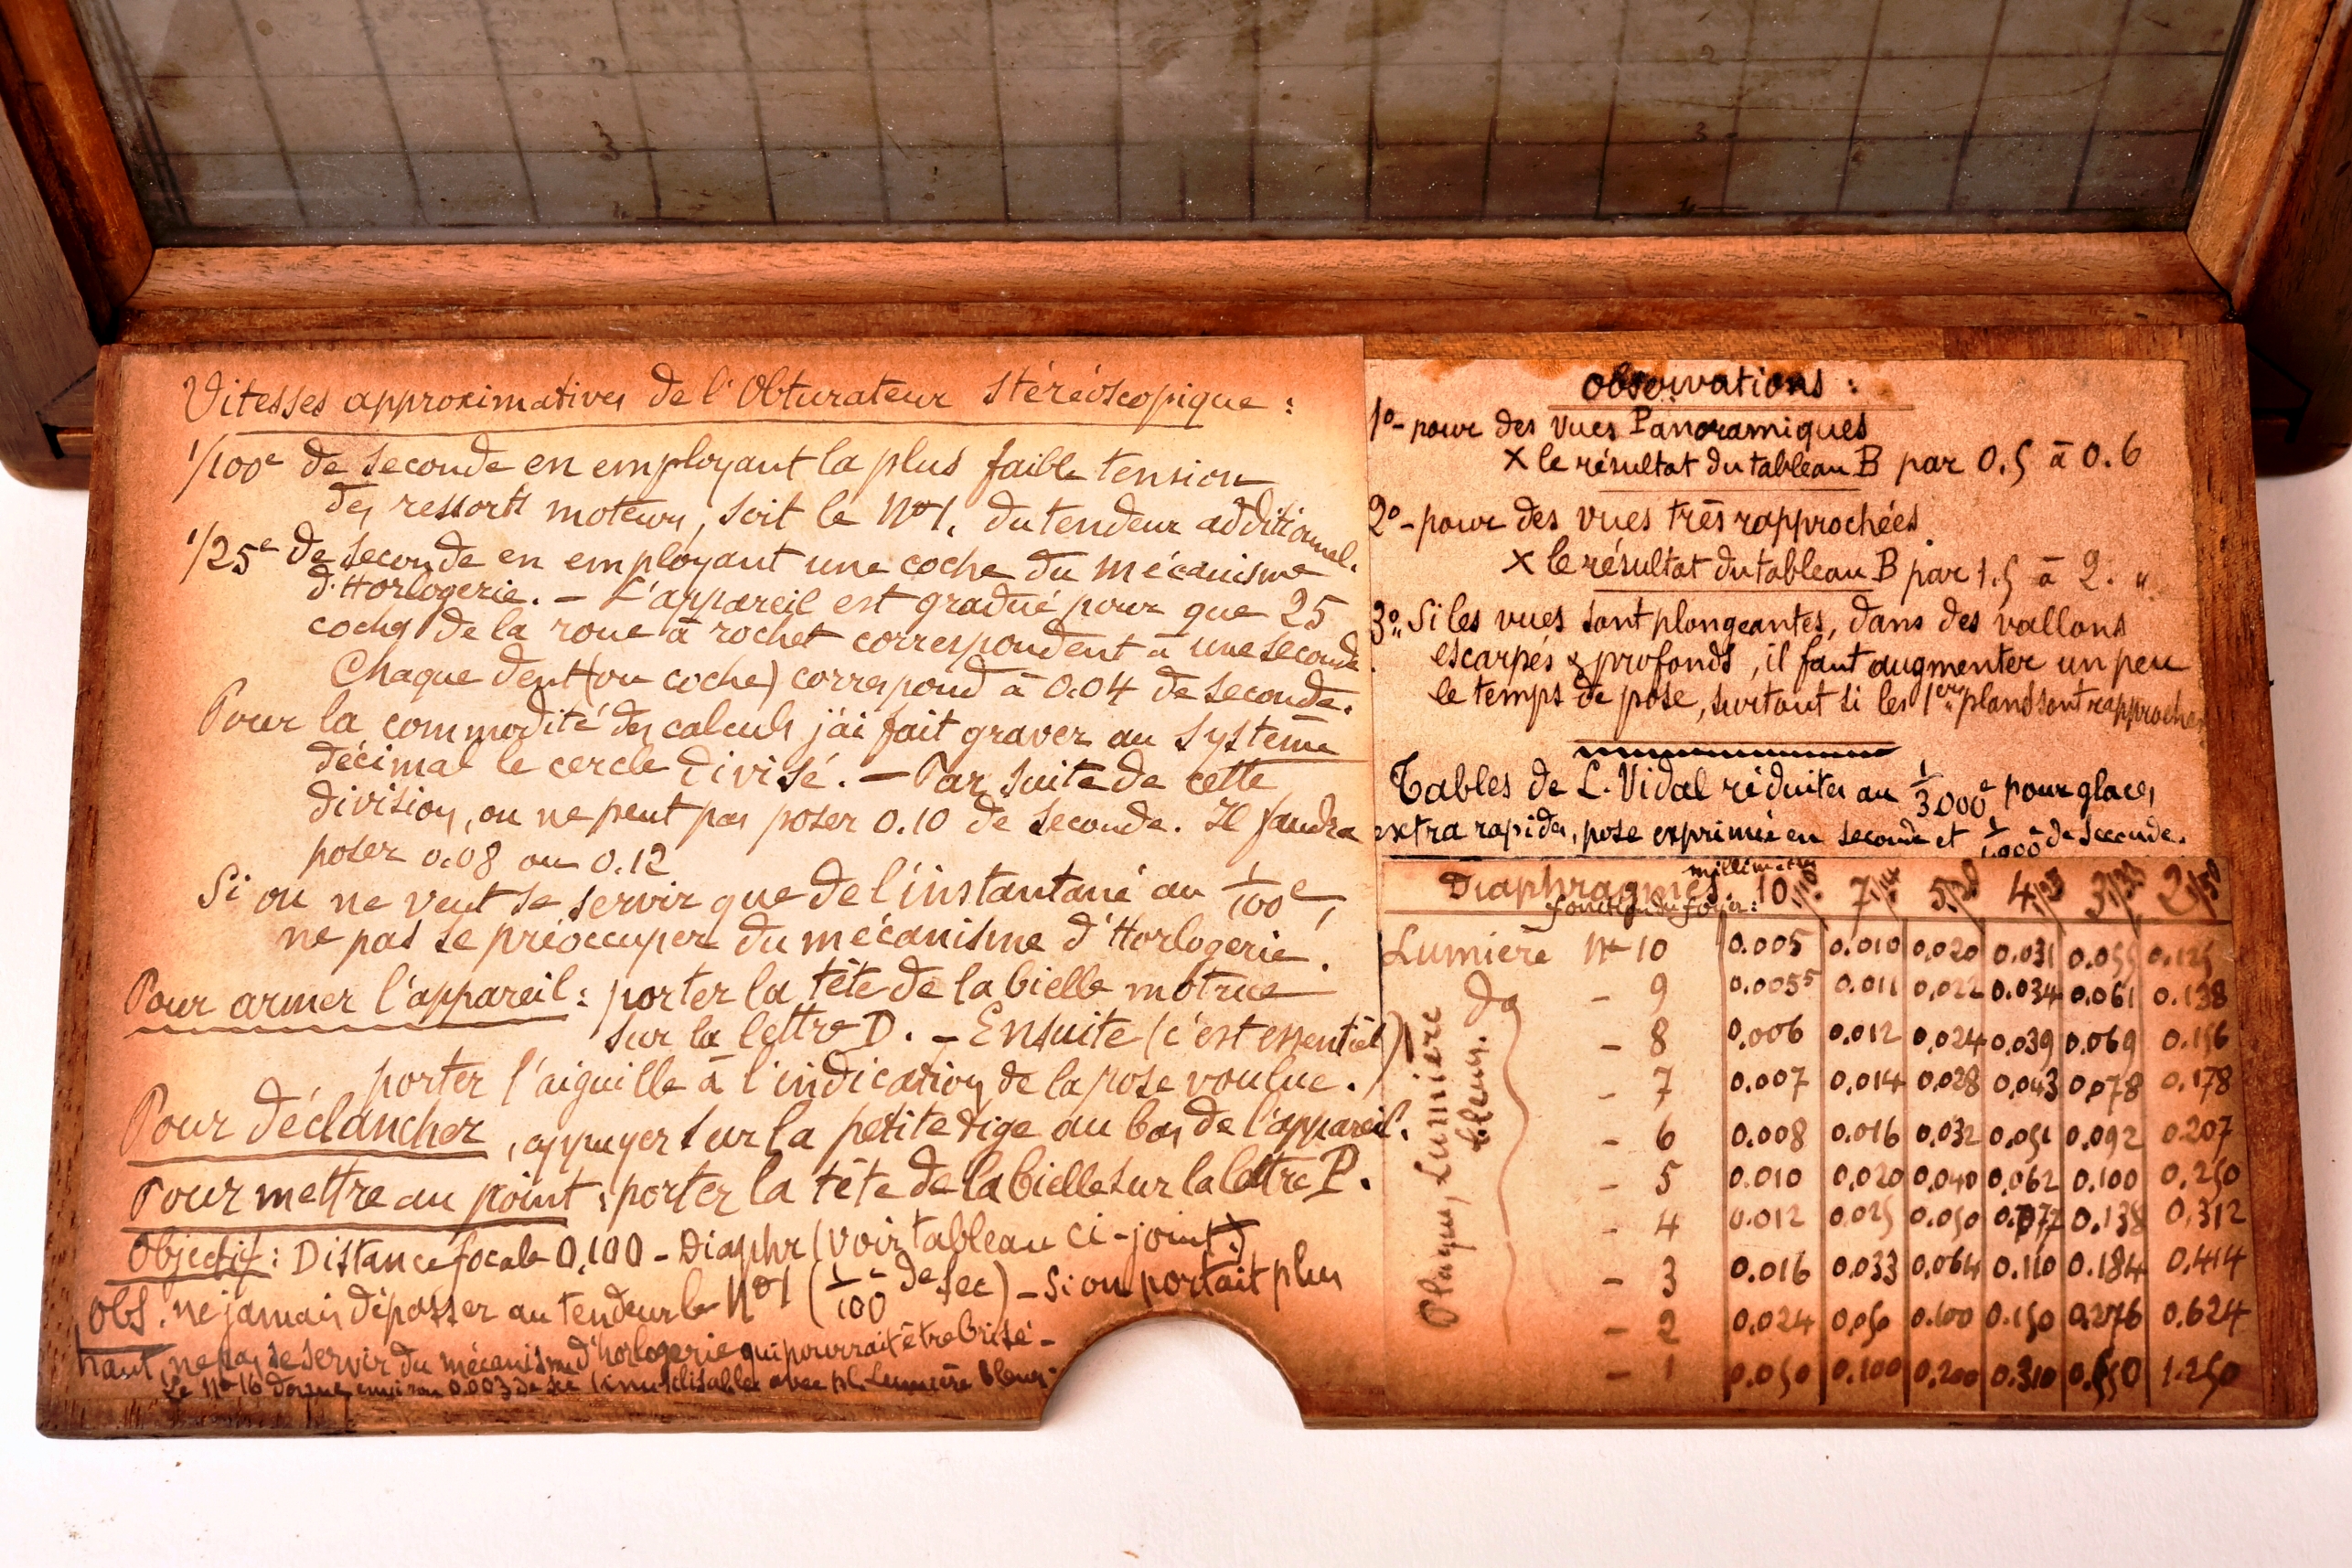 Vitesses approximatives de l'Obturateur Stéréoscopique :
1/100e de seconde en employant la plus faible tension
des ressorts moteurs, soit le No 1. du tendeur additionnel.
1/25e de seconde en employant une coche du mécanisme
d'Horlogerie. — L'appareil est gradué pour que 25
coches de la roue à rochet correspondent à une seconde
Chaque dent (ou coche) correspond à 0.04 de seconde.
Pour la commodité des calculs j'ai fait graver au système
décimal le cercle divisé. — Par suite de cette
division, on ne peut pas poser 0.10 de seconde. Il faudra
poser 0.08 ou 0.12
Si on ne veut se servir que de l'instantané au 1/100e,
ne pas se préoccuper du mécanisme d'Horlogerie.
Pour armer l'appareil : porter la tête de la bielle motrice
sur la lettre D. — Ensuite (c'est essentiel)
porter l'aiguille à l'indication de la pose voulue.
Pour déclancher, appuyer sur la petite tige au bas de l'appareil.
Pour mettre au point : porter la tête de la bielle sur la lettre P.
Objectif : Distance focale 0,100 — Diaphr (voir tableau ci-joint)
Obs. ne jamais dépasser au tendeur le No 1 (1/100e de sec) — Si on portait plus
haut, ne pas se servir du mécanisme d'horlogerie qui pourrait être brisé —
Le No 16 donne environ 0.003 de sec (inutilisable avec pl. Lumière bleue.
Observations :
1o — pour des vues Panoramiques
X le résultat du tableau B par 0.5 à 0.6
2o — pour des vues très rapprochées
X le résultat du tableau B par 1.5 à 2. "
3o" Si les vues sont plongeantes, dans des vallons
escarpés & profonds, il faut augmenter un peu
le temps de pose, surtout si les 1ers plans sont rapprochés
Tables de L. Vidal réduites au 1/3000e pour glaces
extra rapides, pose exprimée en seconde et 1/1000e de seconde.
millimètres
Diaphragmes. 10 1/10 7 1/14 5 1/20 4 1/25 3 1/33 2 1/50
fonction du foyer :
Lumière No 10 0.005 0.010 0.020 0.031 0.055 0.125
do — 9 0.0055 0.011 0.022 0.034 0.061 0.138
— 8 0.006 0.012 0.024 0.039 0.069 0.156
— 7 0.007 0.014 0.028 0.043 0.078 0.178
— 6 0.008 0.016 0.032 0.051 0.092 0.207
— 5 0.010 0.020 0.040 0.062 0.100 0.250
— 4 0.012 0.025 0.050 0.077 0.138 0.312
— 3 0.016 0.033 0.064 0.110 0.184 0.414
— 2 0.024 0.050 0.100 0.150 0.276 0.624
— 1 0.050 0.100 0.200 0.310 0.550 1.250
Plaques, Lumière
bleue.
2
3
4
2
3
4